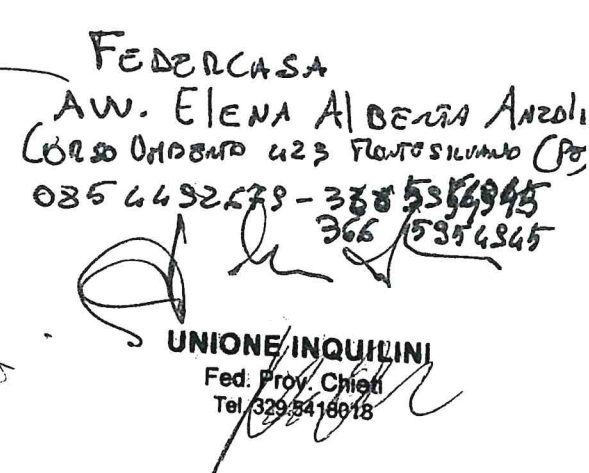 FEDERCASA
AVV. ELENA ALBERTA ANZOLI
CORSO UMBERTO 423 MONTESILVANO (PE)
085 4492679 - 
366 5954945
UNIONE INQUILINI
Fed. Prov. Chieti
Tel. 329.5418018